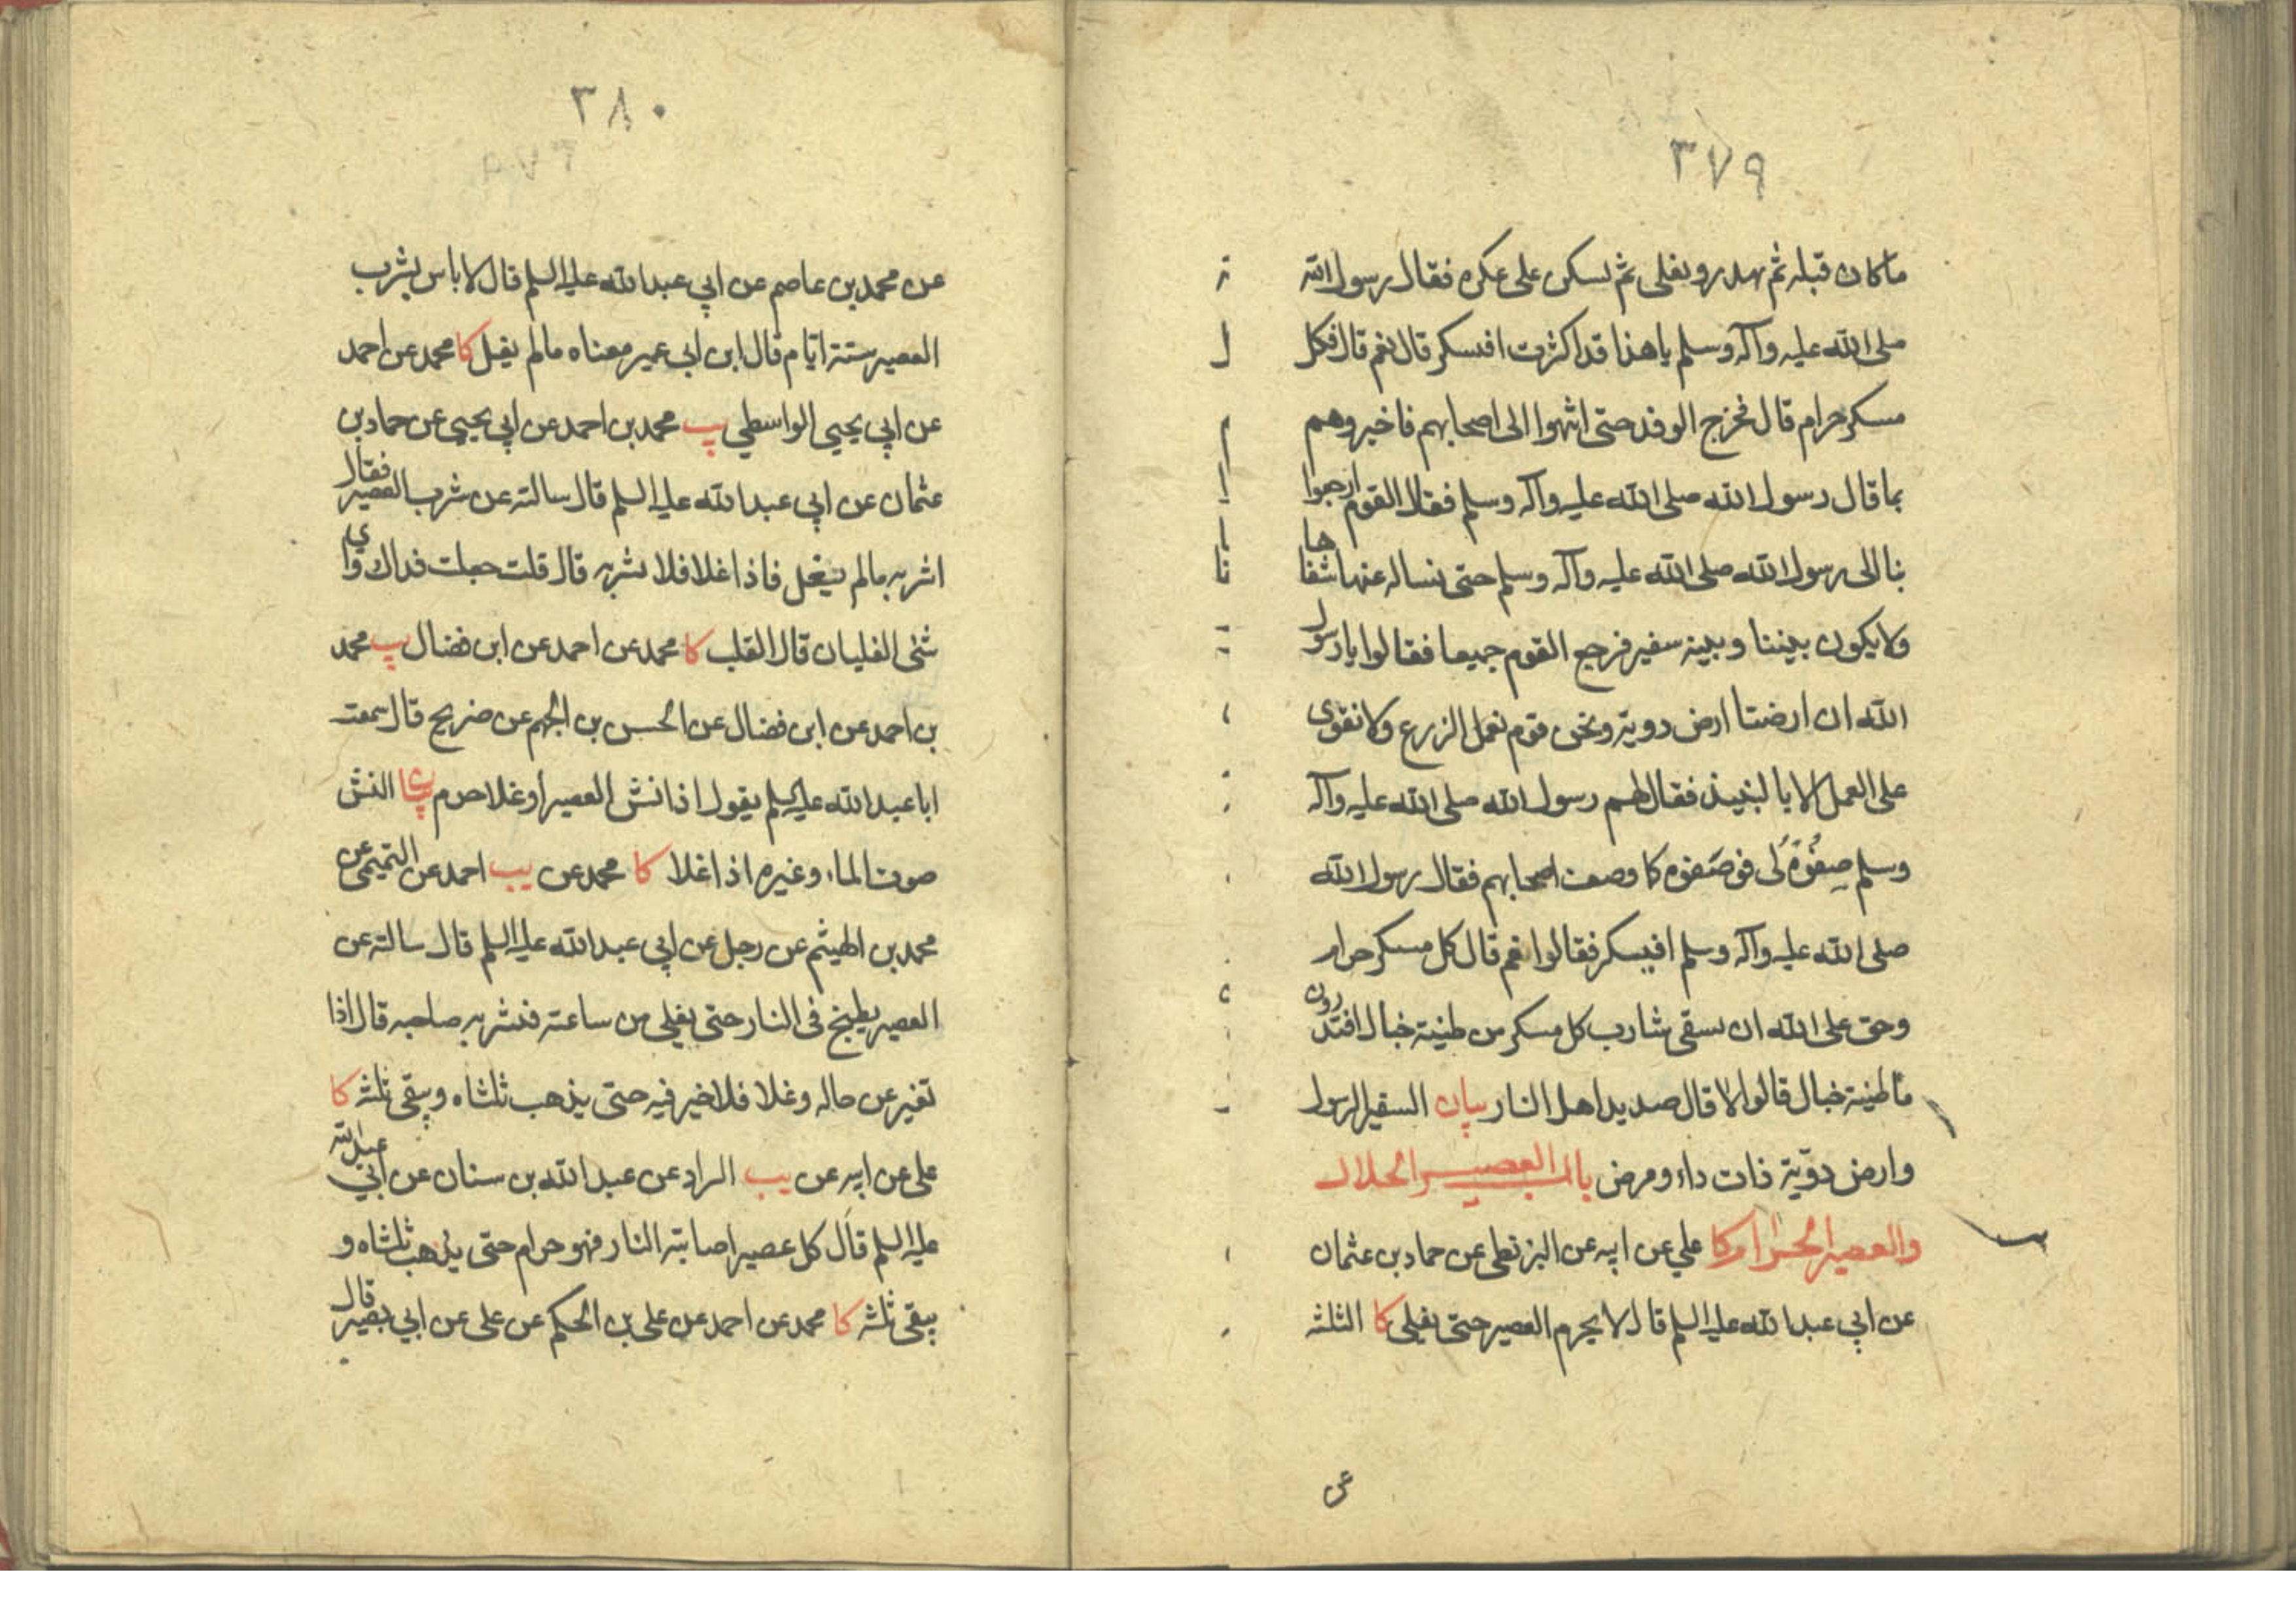 ٣٧٩
ما كان قبله ثم يهدر ويغلى ثم يسكن على عكره فقال رسول الله
صلى الله عليه وآله وسلم ياهذا قد اكثرت افيسكر قال نعم قال فكل
مسكر حرام قال فخرج الوفد حتى انتهوا الى اصحابهم فاخبروهم
بما قال رسول الله صلى الله عليه وآله وسلم فقال القوم ارجعوا
بنا الى رسول الله صلى الله عليه وآله وسلم حتى نساله عنها شفاها
ولا يكون بيننا وبينه سفير فرجع القوم جميعا فقالوا يا رسول
الله ان ارضنا ارض دوية ونحن قوم نعمل الزرع ولا نقوى
على العمل الا بالنبيذ فقال لهم رسول الله صلى الله عليه وآله
وسلم صِفُوهُ لى فوصَفوه كما وصف اصحابهم فقال رسول الله
صلى الله عليه وآله وسلم افيسكر فقالوا نعم قال كل مسكر حرام
وحق على الله ان يسقى شارب كل مسكر من طينة خبال افتدرون
ما طينة خبال قالوا لا قال صديد اهل النار بيان السفير الرسول
وارض دوّية ذات داء ومرض باب العصير الحلال
والعصير الحرام كا علي عن ابيه عن البزنطى عن حماد بن عثمان
عن ابي عبد الله عليه السلم قال لا يحرم العصير حتى يغلى كا الثلثه
عن
٣٨٠
عن محمد بن عاصم عن ابي عبد الله عليه السلم قال لا باس بشرب
العصير ستة ايام قال ابن ابى عمير معناه مالم يغل كا محمد عن احمد
عن ابي يحيى الواسطي يب محمد بن احمد عن ابي يحيى عن حماد بن
عثمان عن ابي عبد الله عليه السلم قال سالته عن شرب العصير فقال
اشربه مالم يغل فاذا غلا فلا تشربه قال قلت جعلت فداك واى
شئ الغليان قال القلب كا محمد عن احمد عن ابن فضال يب محمد
بن احمد عن ابن فضال عن الحسن بن الجهم عن ضريح قال سمعت
ابا عبد الله عليه السلم يقول اذا نش العصير او غلا حرم بيان النش
صوت الماء وغيره اذا غلا كا محمد عن يب احمد عن التميمى عن
محمد بن الهيثم عن رجل عن ابي عبد الله عليه السلم قال سالته عن
العصير يطبخ فى النار حتى يغلى من ساعته فيشربه صاحبه قال اذا
تغير عن حاله وغلا فلا خير فيه حتى يذهب ثلثاه ويبقى ثلثه كا
على عن ابيه عن يب السراد عن عبد الله بن سنان عن أبي عبد الله
عليه السلم قال كل عصير اصابته النار فهو حرام حتى يذهب ثلثاه و
يبقى ثلثه كا محمد عن احمد عن على بن الحكم عن على عن ابي بصير قال